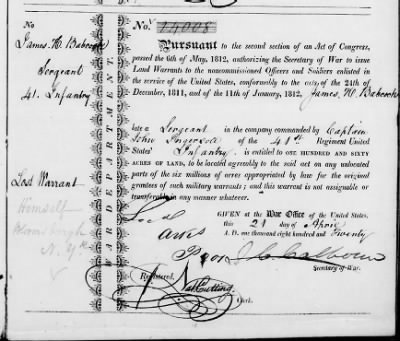 No
James H. Babcock
Sergeant
41. Infantry
Lost Warrant
Himself
N. Y.
WAR DEPARTMENT.
No. 24008
Pursuant to the second section of an Act of Congress,
passed the 6th of May, 1812, authorizing the Secretary of War to issue
Land Warrants to the noncommissioned Officers and Soldiers enlisted in
the service of the United States, conformably to the acts of the 24th of
December, 1811, and of the 11th of January, 1812, James H. Babcock
late a Sergeant in the company commanded by Captain
John Ingersoll of the 41st Regiment United
States' Infantry is entitled to ONE HUNDRED AND SIXTY
ACRES OF LAND, to be located agreeably to the said act on any unlocated
parts of the six millions of acres appropriated by law for the original
grantees of such military warrants; and this warrant is not assignable or
transferable in any manner whatever.
GIVEN at the War Office of the United States,
this 21 day of April
A. D. one thousand eight hundred and Twenty
J. C. Calhoun
Secretary of War.
Registered,
Nat Cutting
Clerk.